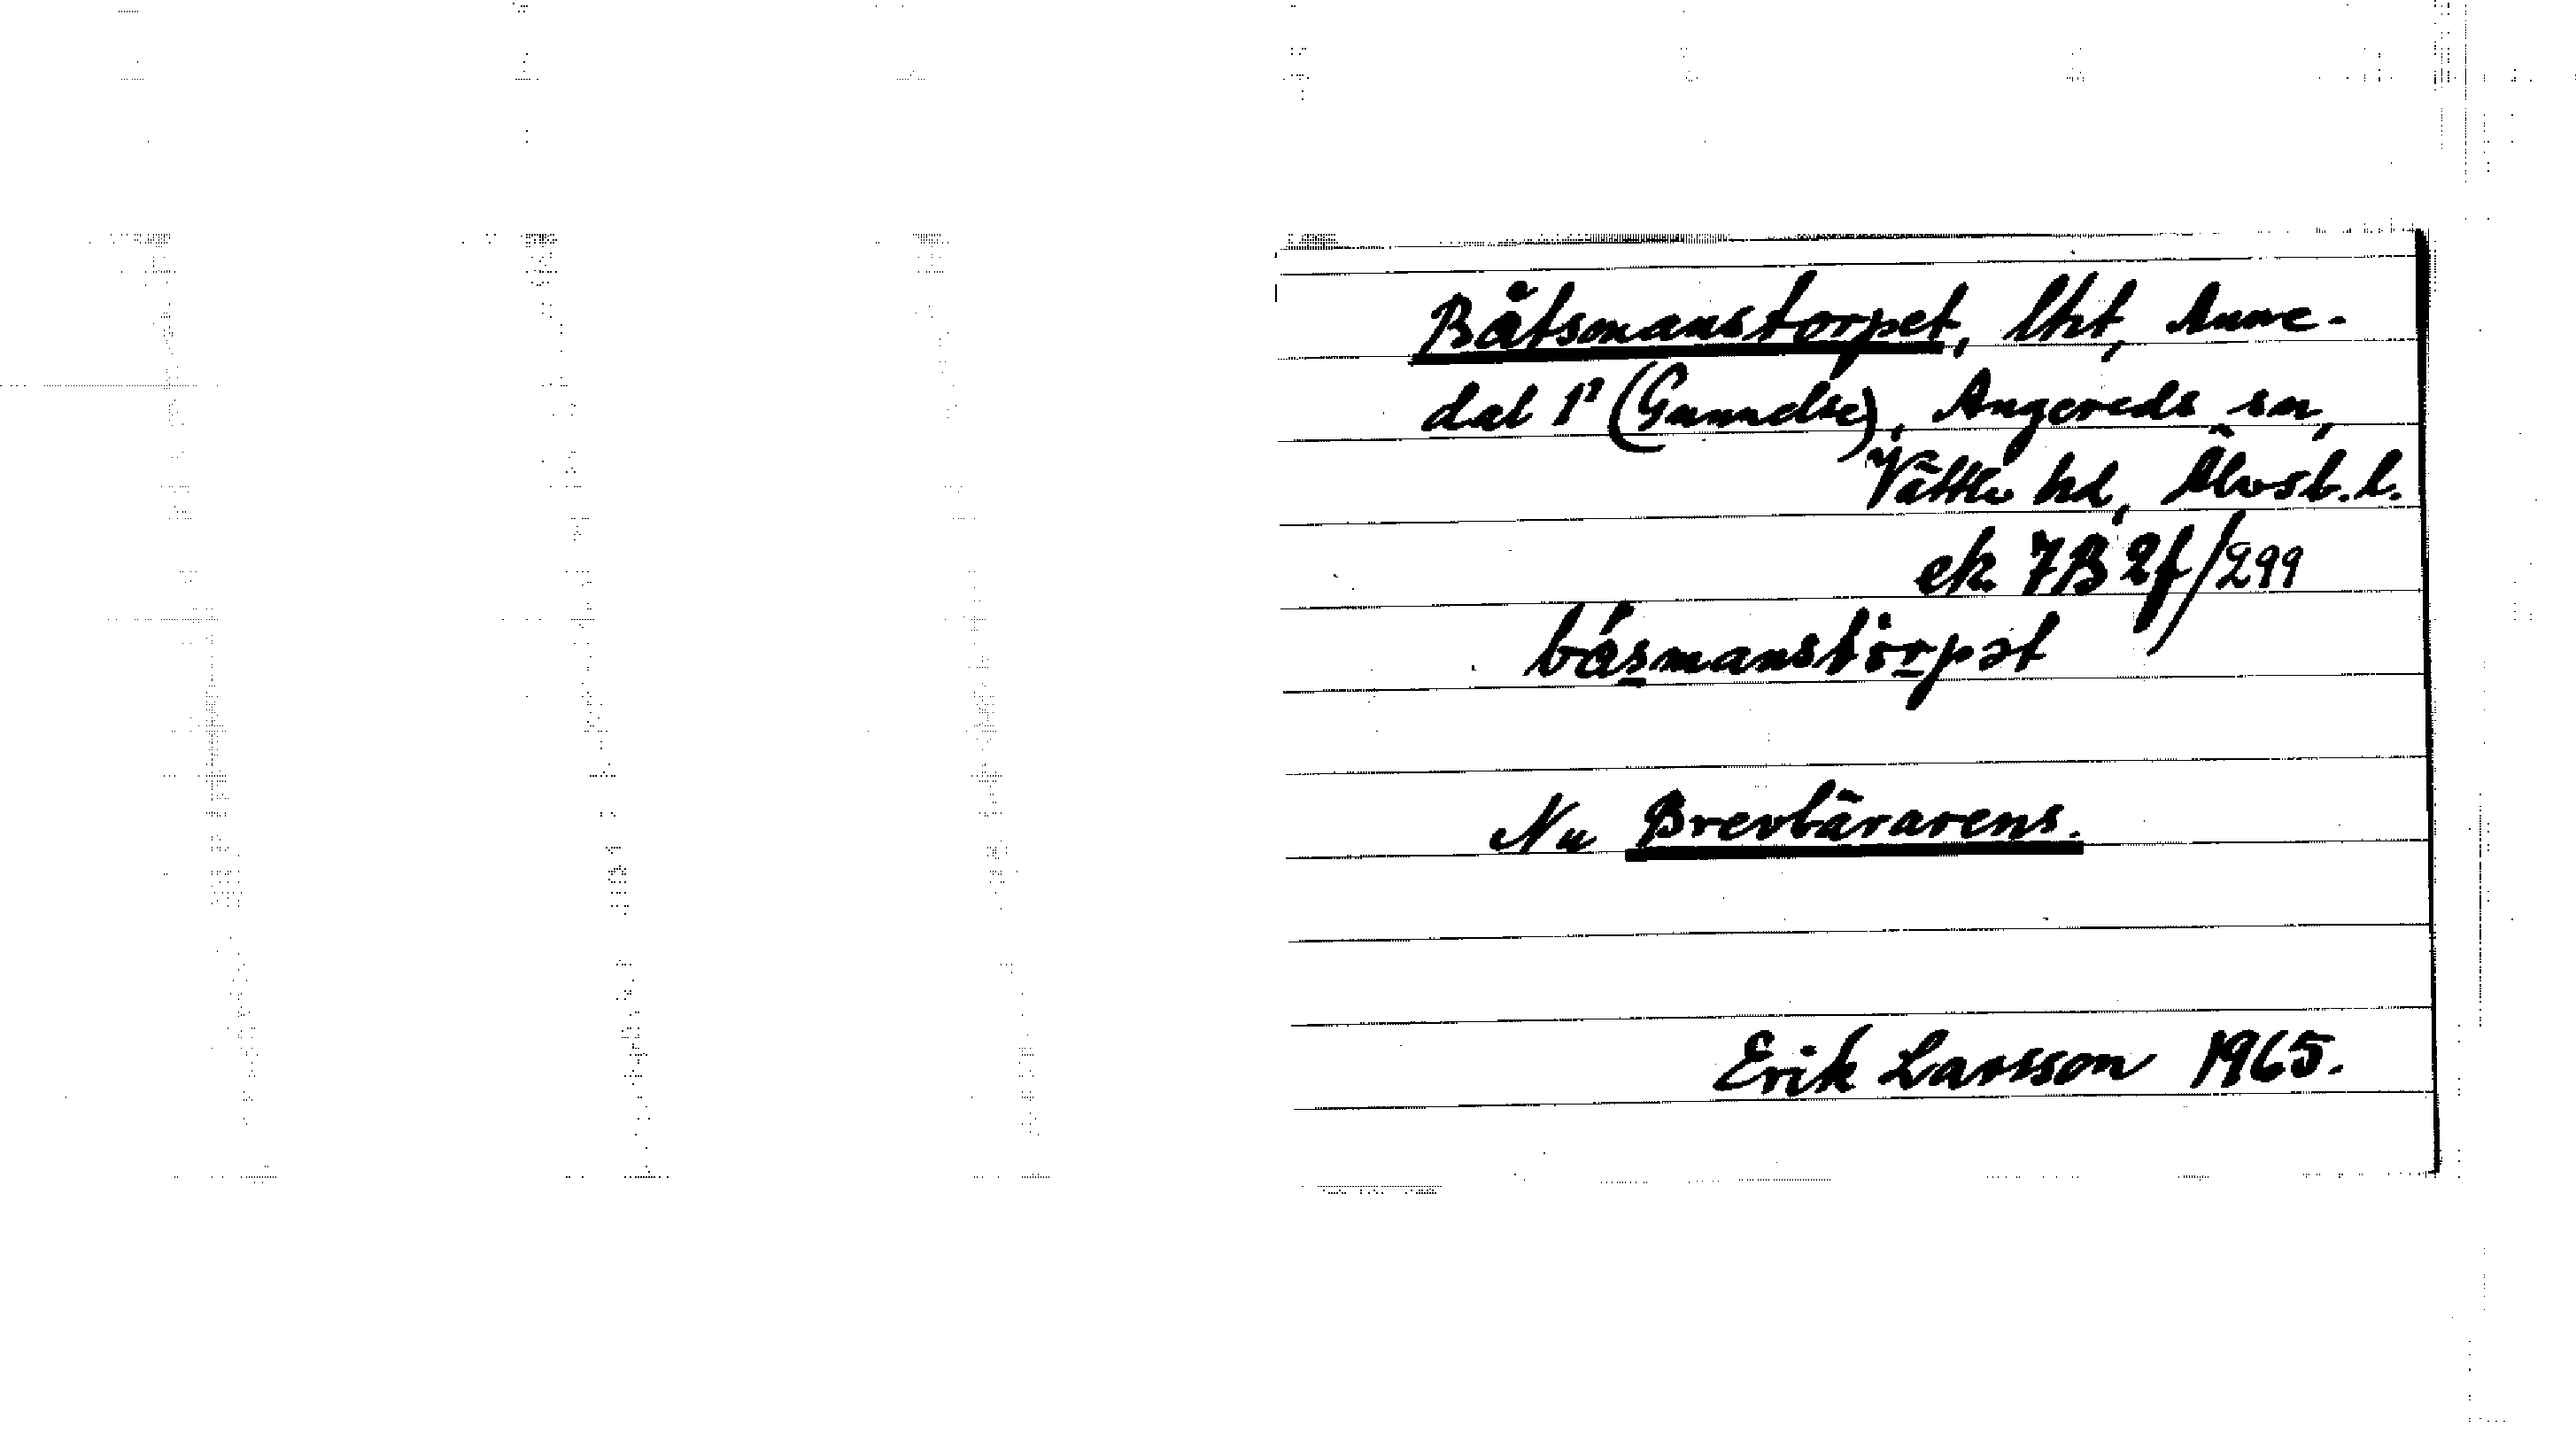 Båtsmanstorpet, lht, Anne-
dal 1² (Gunnelse), Angereds sn,
Vättle hd, Älvsb. l.
ek 7B 2f/299
båsmanstorpət
Nu Brevbärarens.
Erik Larsson 1965.